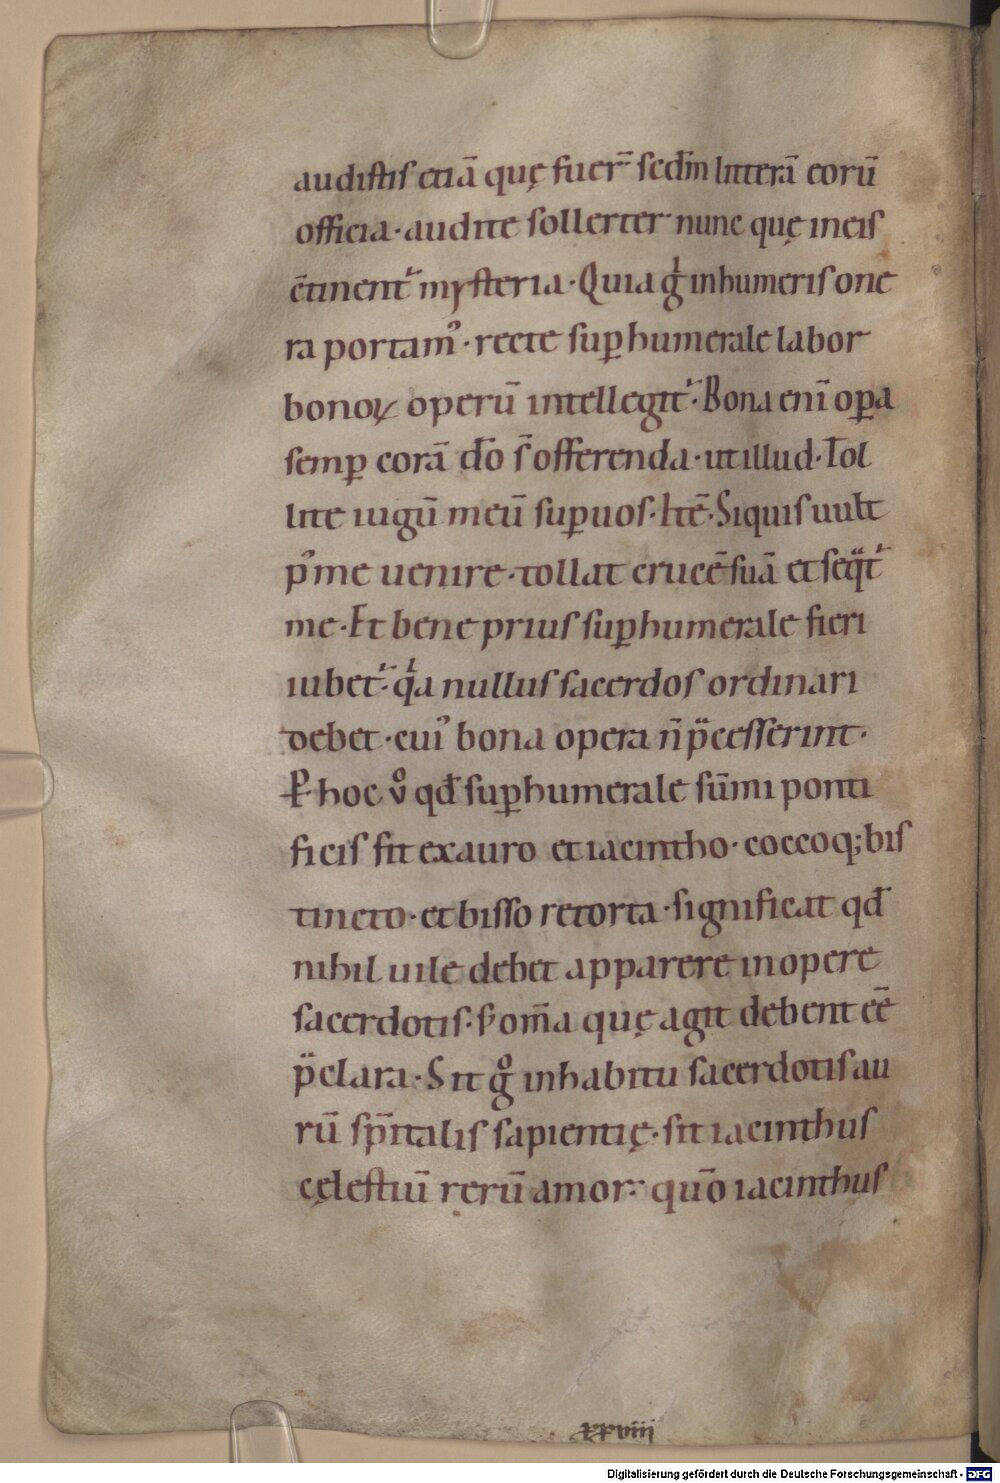 audistis etiā quę fuer̄ sedm̄ litterā eorū
officia · audite sollerter · nunc quę in eis
c̄tinent᷑ mysteria · Quia gͥ in humeris one
ra portamꝰ · recte suꝑhumerale labor
bonoꝝ operū intellegit᷑ · Bona enī oꝑa
semꝑ corā dō s̄ offerenda · ut illud · Tol
lite iugū meū suꝑ uos · Itē · Si quis uult
pꝰ me uenire · tollat crucē suā et seq̈t᷑
me · Et bene prius suꝑhumerale fieri
iubet᷑ · qͥa nullus sacerdos ordinari
debet · cuiꝰ bona opera n̄ p̈cesserint ·
P̵ hoc uͦ qđ suꝑhumerale sūmi ponti
ficis fit ex auro et iacintho · coccoq; bis
tincto · et bisso retorta · significat qđ
nihil uile debet apparere in opere
sacerdotis · s; om̄a quę agit debent eē
p̈clara · Sit gͦ in habitu sacerdotis au
rū sp̄italis sapientię · sit iacinthus
cęlestiū rerū amor · quō iacinthus
xxviii
Digitalisierung gefördert durch die Deutsche Forschungsgemeinschaft - DFG